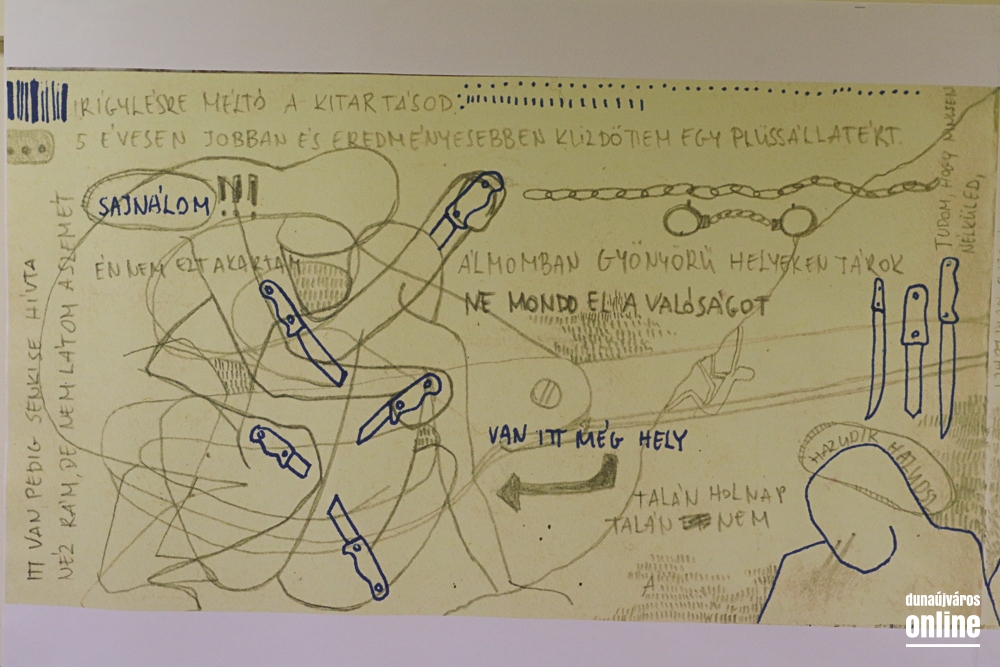 IRIGYLÉSRE MÉLTÓ A KITARTÁSOD.
5 ÉVESEN JOBBAN ÉS EREDMÉNYESEBBEN KÜZDÖTTEM EGY PLÜSSÁLLATÉRT.
SAJNÁLOM !!!
ÉN NEM EZT AKARTAM
ITT VAN PEDIG SENKI SE HÍVTA
NÉZ RÁM, DE NEM LÁTOM A SZEMÉT
ÁLMOMBAN GYÖNYÖRŰ HELYEKEN JÁROK
NE MONDD EL A VALÓSÁGOT
TUDOM, HOGY NINCSEN
NÉLKÜLED,
VAN ITT MÉG HELY
TALÁN HOLNAP
TALÁN NEM
HAZUDIK
A
dunaújváros
online